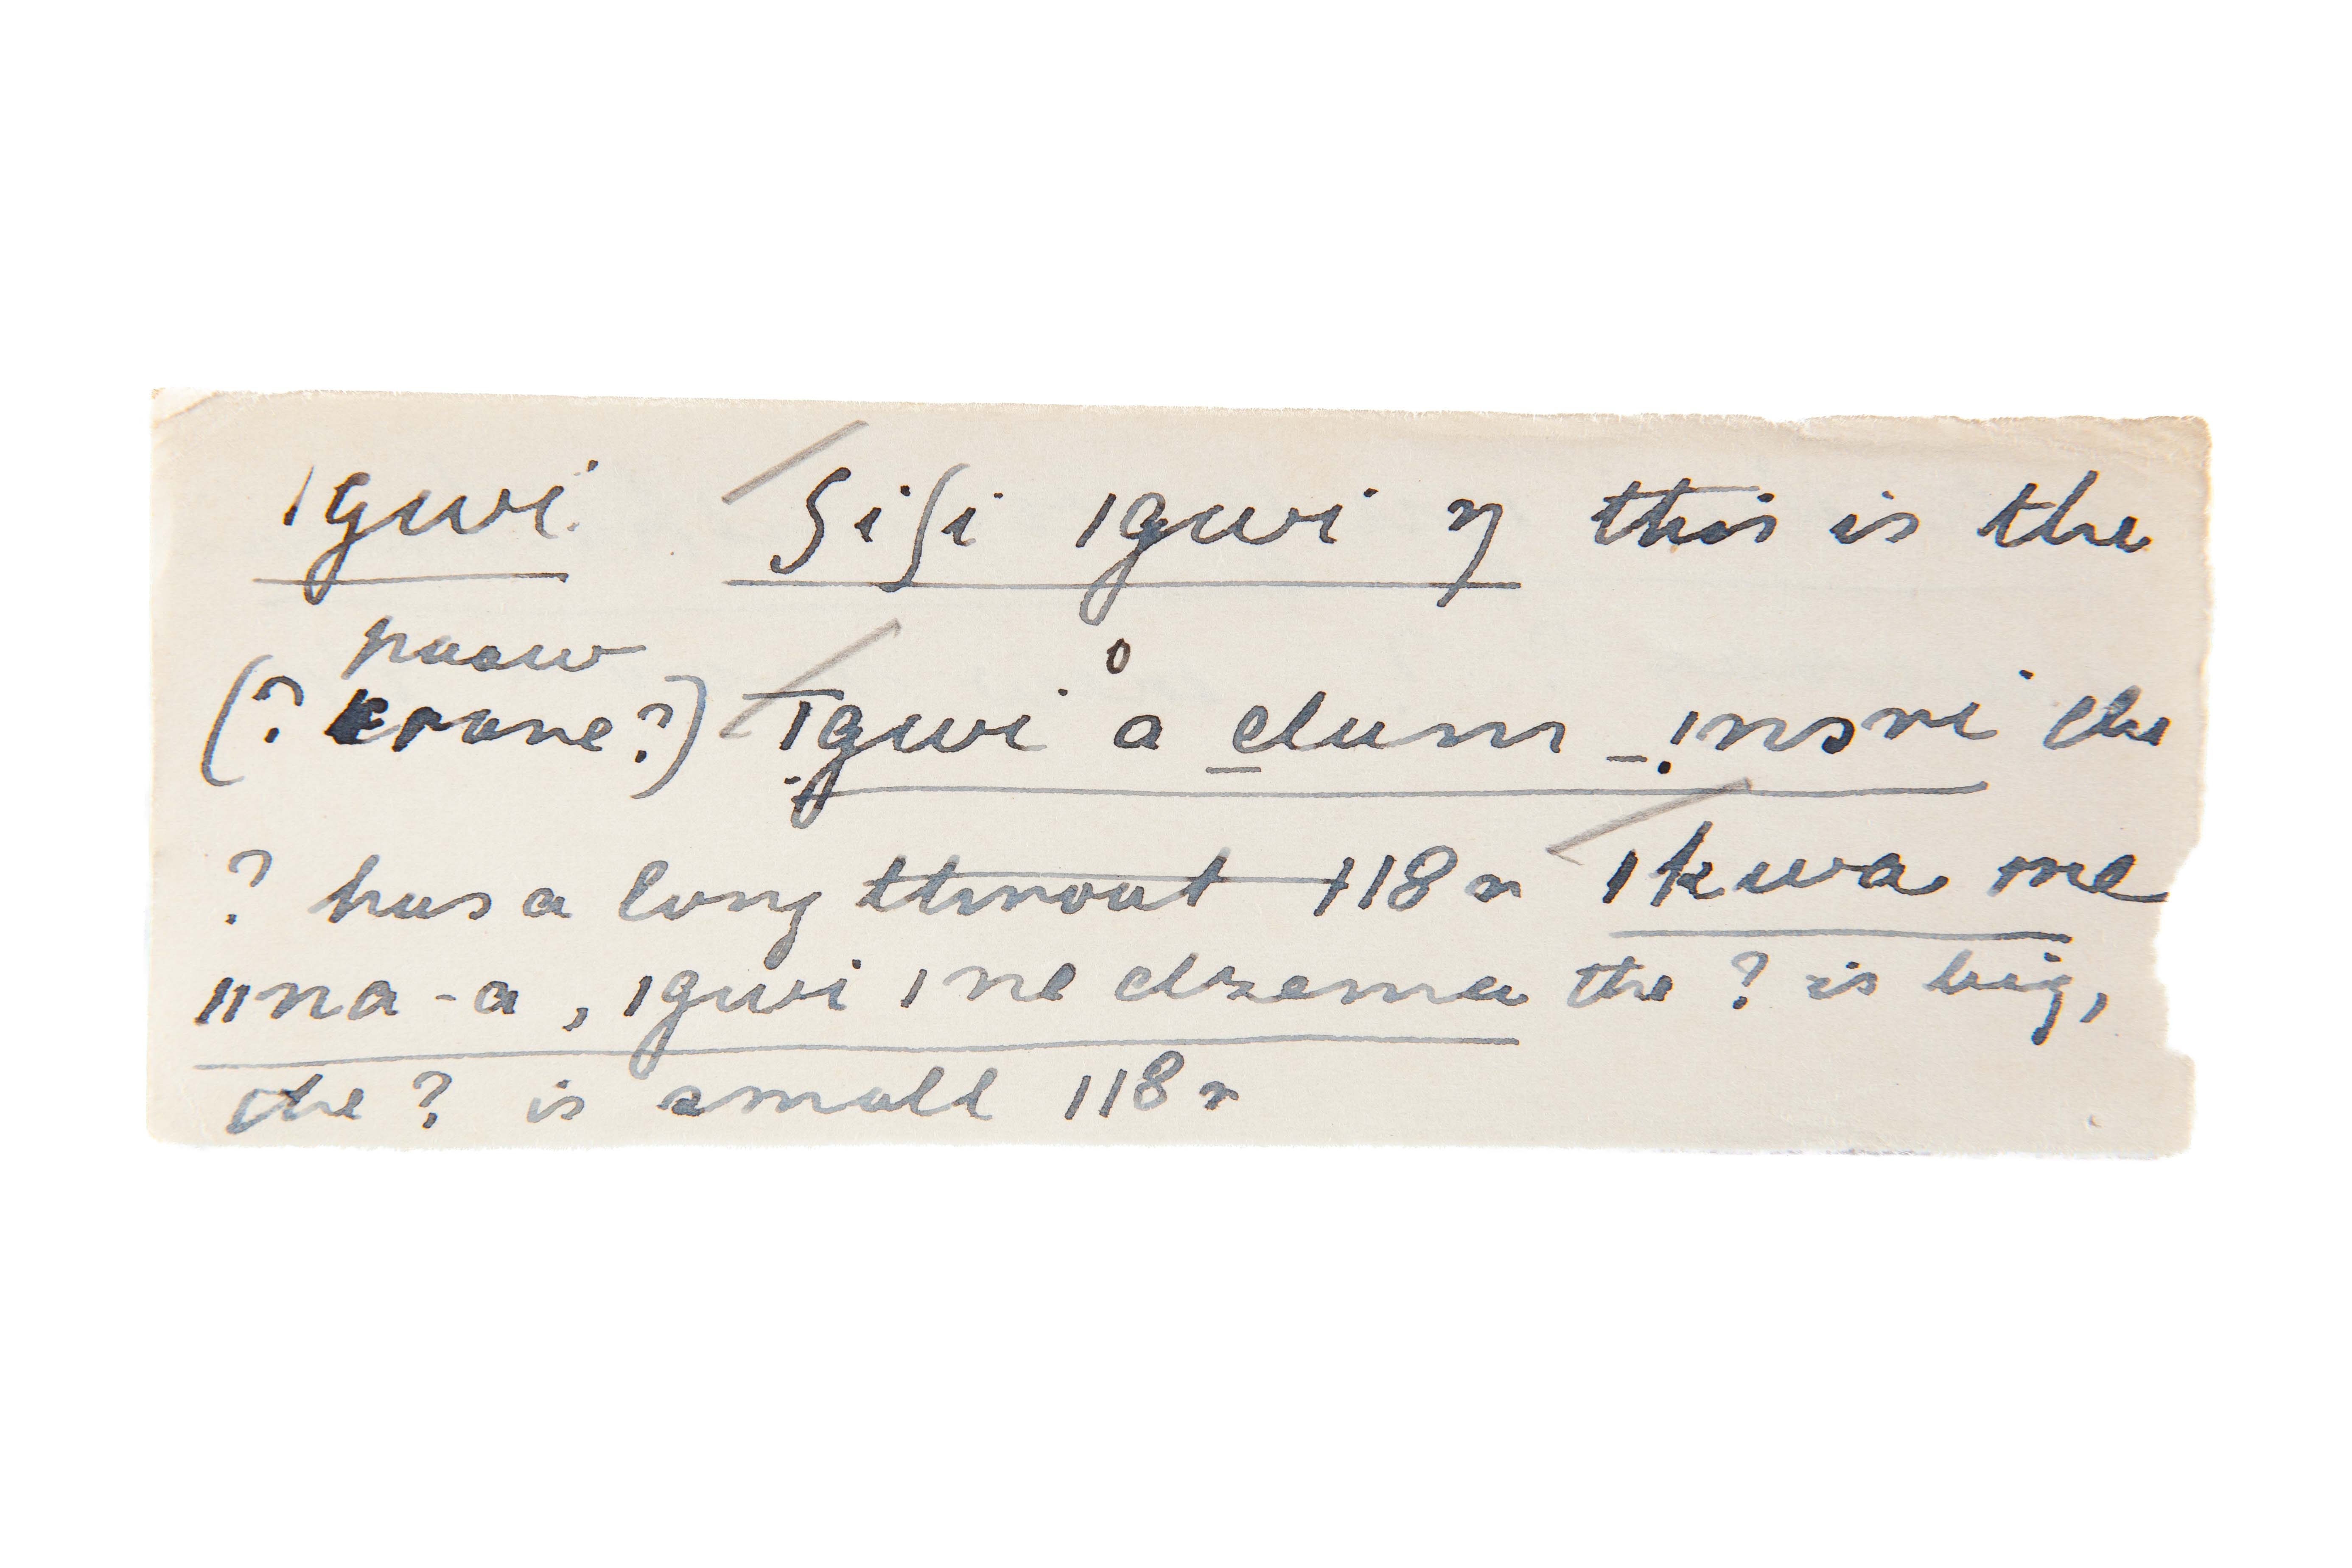 ǀgwi ʃiʃi ǀgwi η this is the
paauw
(? Krane?) ǀgwi a dum -ǃnɔni the
? has a long throat 118r ǀkwa me
ǁna-a, ǀgwi ǀne dzema the ? is big,
the ? is small 118r